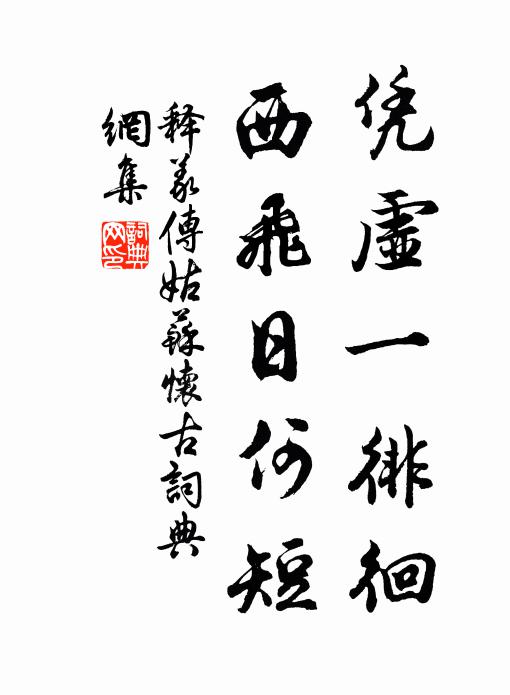 凭虚一徘徊
西飛日何短
释義傳姑蘇懷古詞典
網集
詞典
网印